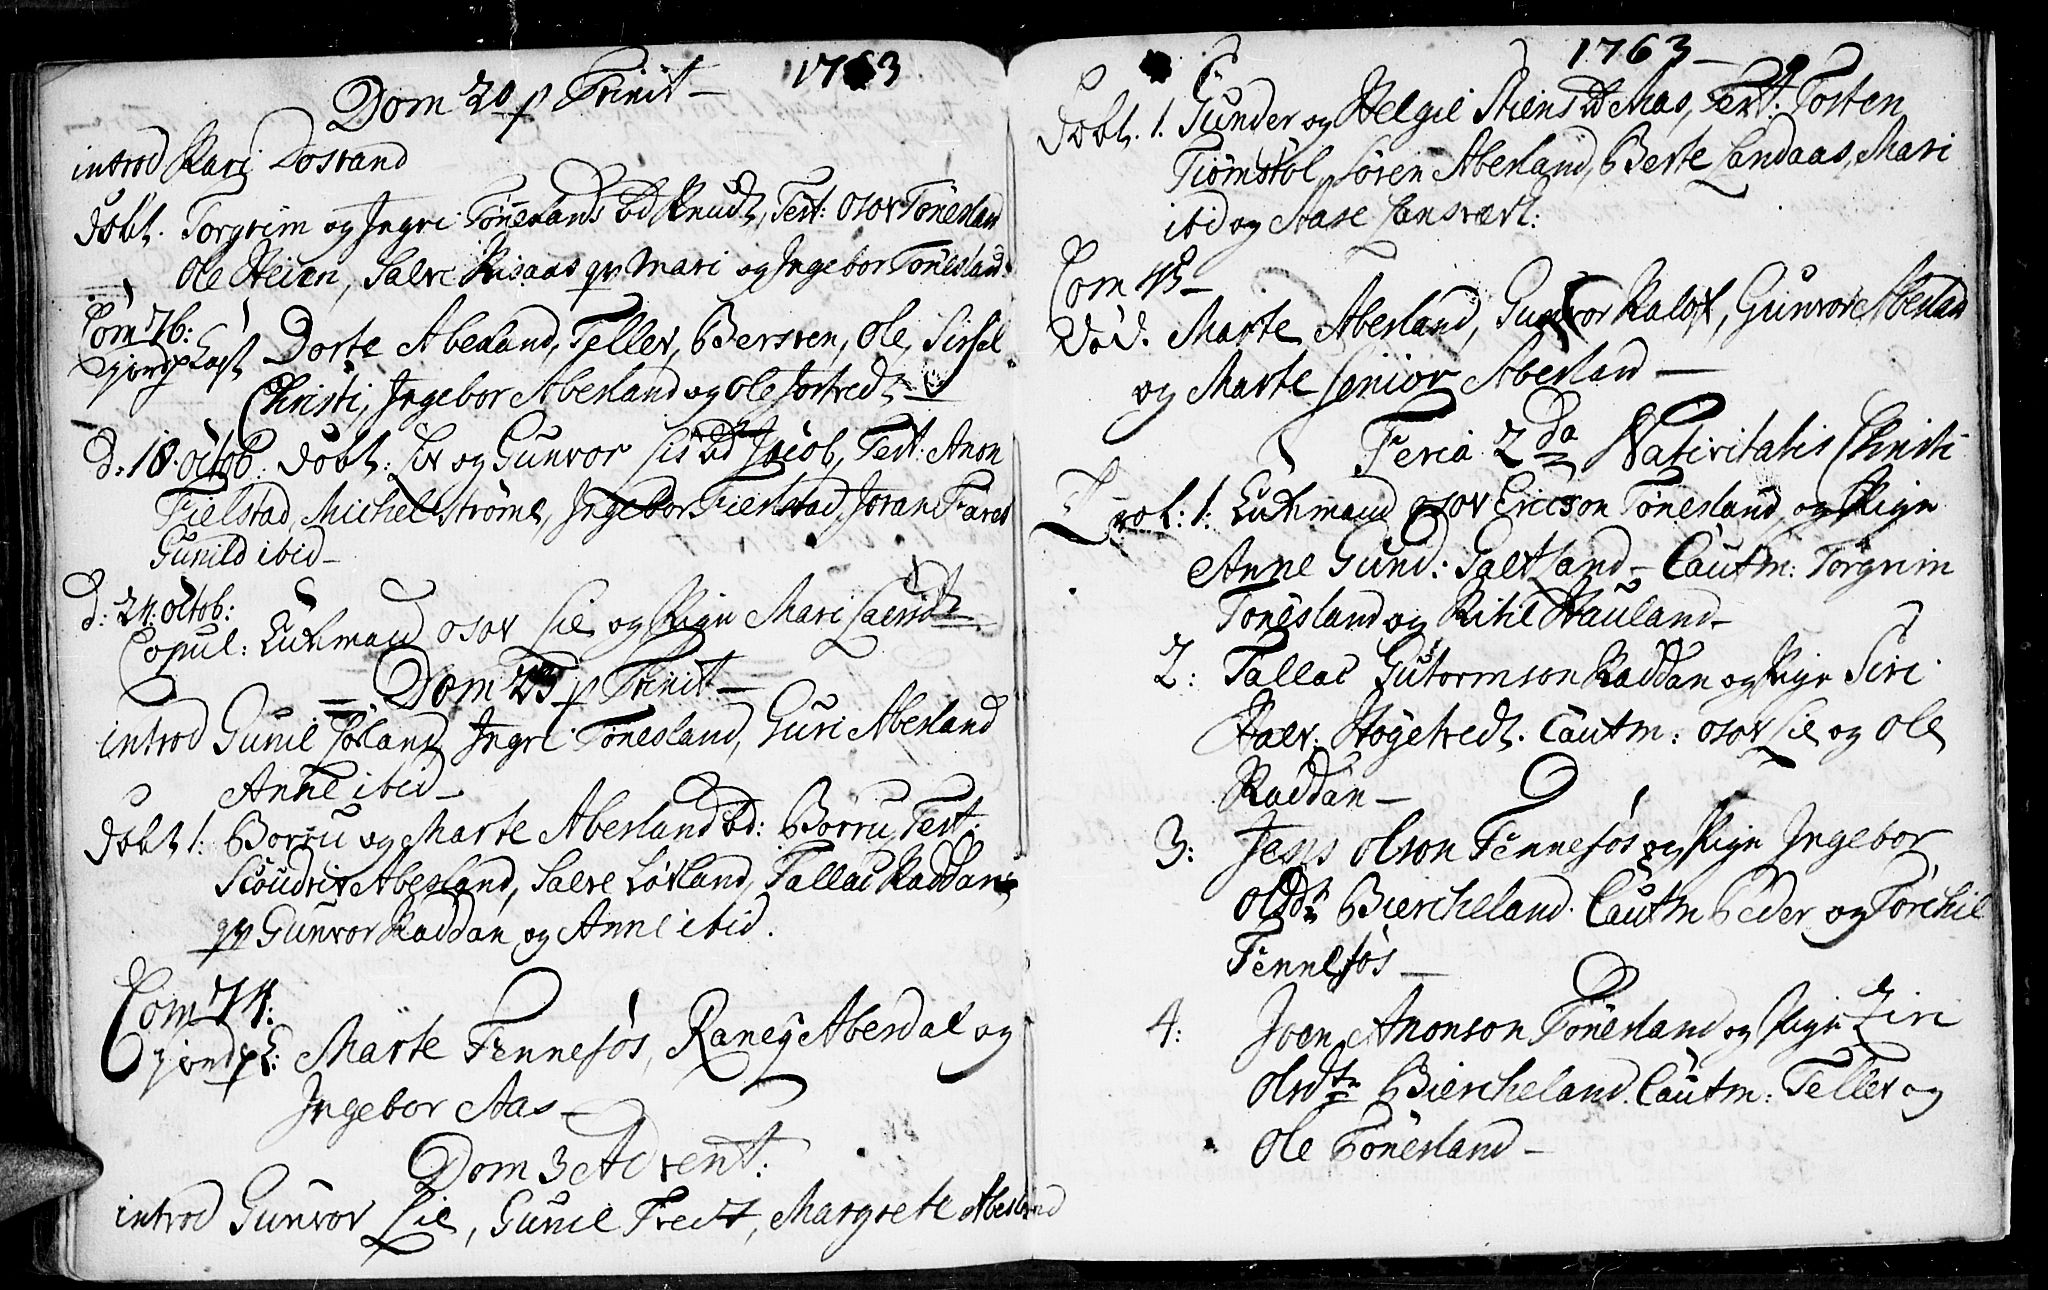 1763
Dom 20 p Trinit
introd Kari Dosrand
Døbt. Torgrim og Ingri Tønesland's bd Knudt, Test: Osov Tønesland
Ole Heien, Salve Risaas qv Mari og Ingebor Tønesland.
Com 76:
Dorte Abesland, Tellev, Bersven, Ole, Sissel
Christi, Ingebor Abesland og Ole
D. 18. octob. Døbt: Liv og Gunvor Lis bd Jacob, Test: Anon
Fielstad, Michel Strømt, Ingebor Fielstad, Joran
Gunild ibid
d: 24. octob:
Copul: Ungkmand Osov Lie og Pige Mari
Dom 23 p Trinit
introd Gunil Løland, Ingri Tønesland, Guri Abesland
Anne ibid
Døbt 1: Borru og Marte Abesland bd: Borru, Test:
Siourdit Abesland, Salve Løvland, Tallac Raddan
qv Gunvor Raddan og Anne ibid.
Com 74:
Marte Fennefos, Raneg Abesdal og
Ingebor Aas
Dom 3 Advent:
introd Gunvor Lie, Gunil Tredt, Margrete Abesland
1763
Døbt. 1. Gunder og Helgie Stiens bd Mas, Test: Tosten
Tiømstøl, Søren Abesland, Berte Landaas, Mari
ibid og Aase
Com 45
Død. Marte Abesland, Gunvor, Gunvor Abesland
og Marte Senior Abesland
Feria 2da Nativitatis Christi
Trol: 1: Ungkmand Osov Ericson Tønesland og Pige
Anne Gund: Galtland. Cautm: Torgrim
Tønesland og Kitil Hauland
2: Tallac Gutormson Raddan og Pige Siri
Halv: Høgetvedt. Cautm: Osov Lie og Ole
Raddan
3: Jens Olson Fennefos og Pige Ingebor
Olsdtr Biercheland. Cautm Peder og Torchil
Fennefos
4: Joen Anonson Tønesland og Pige Siri
Olsdtr Biercheland. Cautm: Tellev og
Ole Tønesland